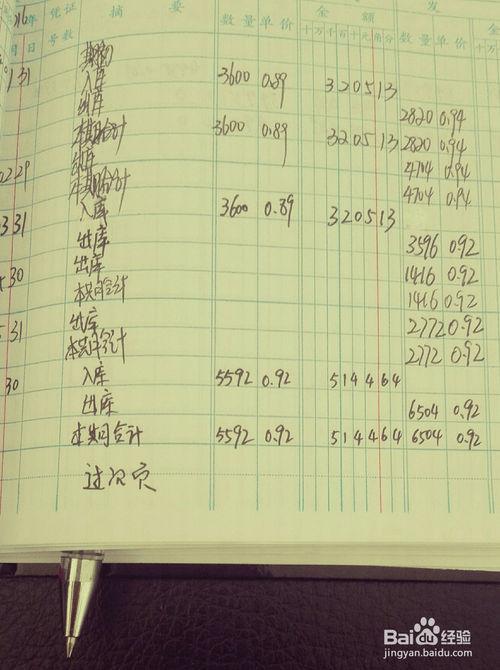 16年 凭证 摘 要 数量 单价 金 额 发
月 日 号数 十万千百十元角分 数量 单价 十万千
期初
1 31 入库 3600 0.89 320513
出库 2820 0.94
本期合计 3600 0.89 320513 2820 0.94
出库 4704 0.94
2 29 本期合计 4704 0.94
入库 3600 0.89 320513
3 31 出库 3596 0.92
出库 1416 0.92
30 本期合计 1416 0.92
出库 2772 0.92
31 本期合计 2772 0.92
30 入库 5592 0.92 514464
出库 6504 0.92
本期合计 5592 0.92 514464 6504 0.92
过次页
Baidu 经验
jingyan.baidu.com